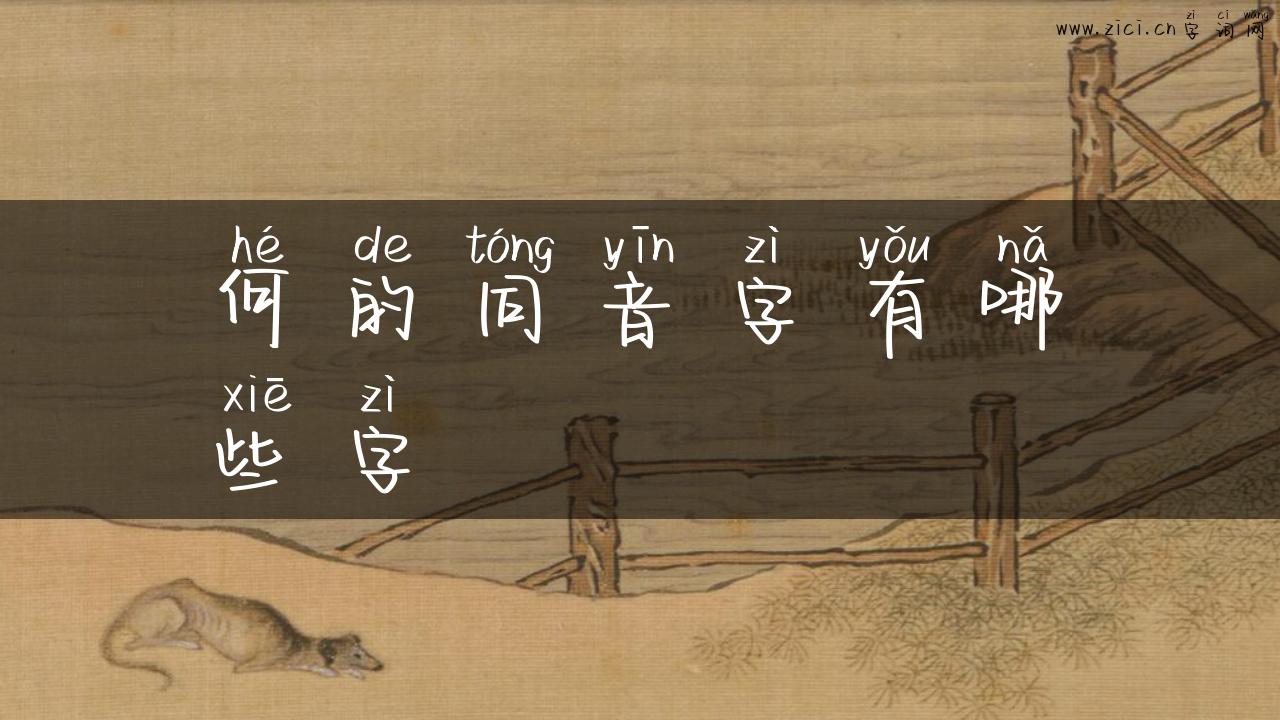 zì cí wǎng
www.zici.cn 字词网
hé de tóng yīn zì yǒu nǎ
何的同音字有哪
xiē zì
些字